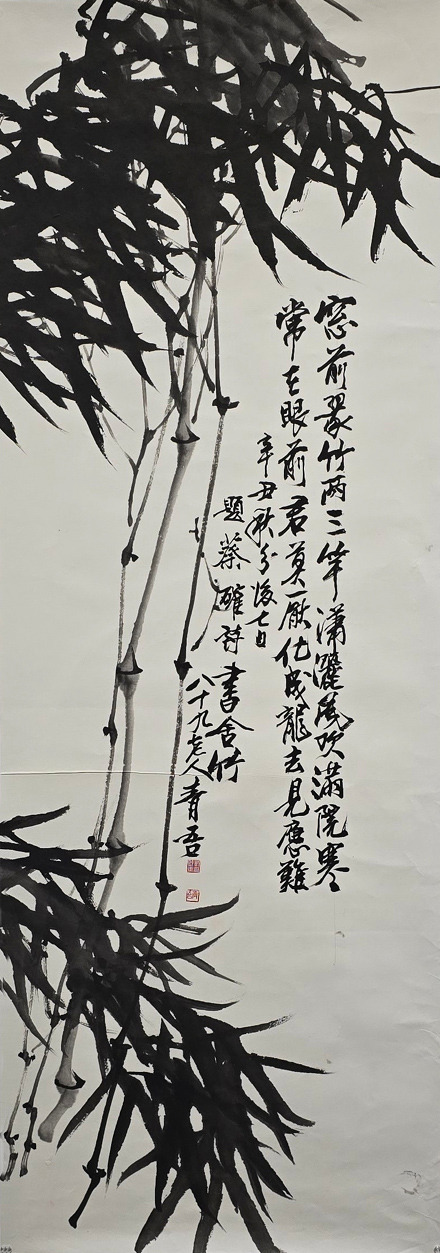 窓前翠竹两三竿潇灑風吹满院寒
常在眼前君莫厭化成龍去見應難
辛丑秋分後七日
題蔡確詩書舍竹
八十九老人青吾